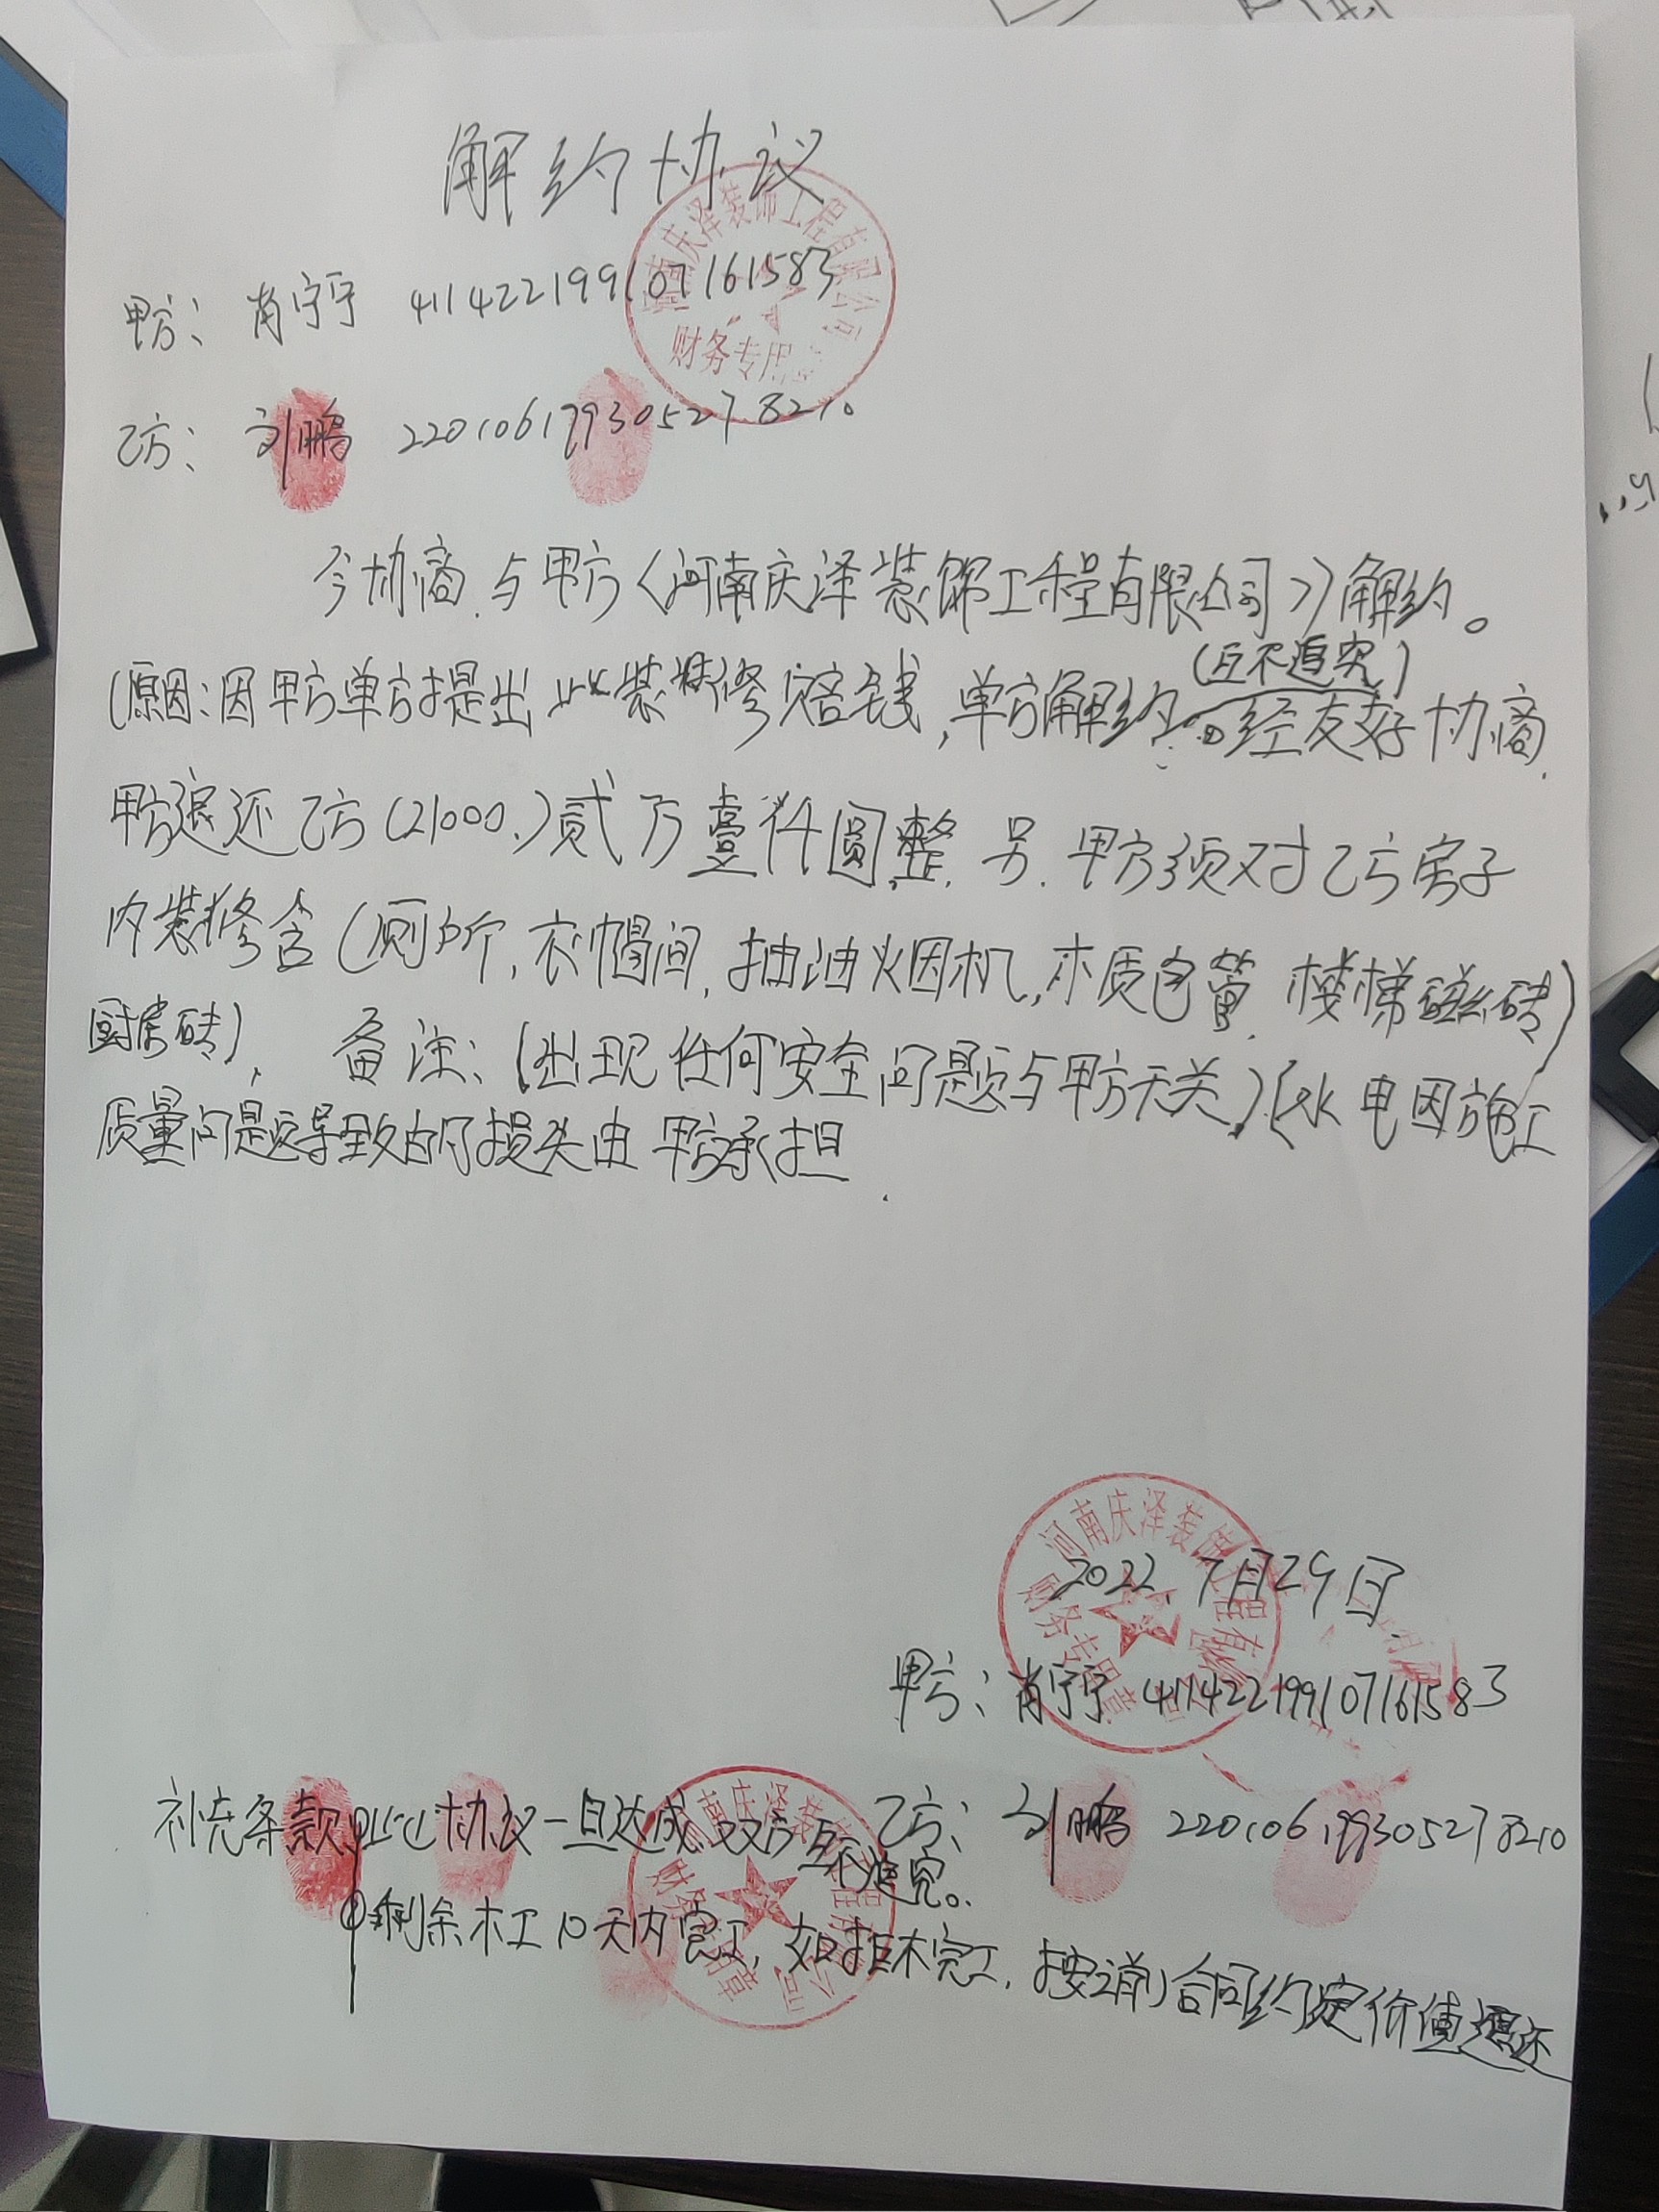 解约协议
甲方：肖宁宁 411422199107161583
河南庆泽装饰工程有限公司
财务专用
乙方：刘鹏 220106199305278210
今协商.与甲方《河南庆泽装饰工程有限公司》解约。
(互不追究)
(原因:因甲方单方提出此装修赔钱,单方解约。经友好协商.
甲方退还乙方(21000.)贰万壹仟圆整.另.甲方须对乙方房子
内装修含(厕所,衣帽间,抽油烟机,木质包管.楼梯磁砖)
厨房砖), 备注:(出现任何安全问题与甲方无关)(水电因施工
质量问题导致的损失由甲方承担.
河南庆泽装饰工程有限公司
财务专用章
2022.7月29日
甲方：肖宁宁 411422199107161583
乙方：刘鹏 220106199305278210
补充条款①此协议一旦达成双方互不追究。
南庆泽装 程有限公司
财务 用章
②剩余木工10天内完工,如拒不完工,按之前合同约定价值退还